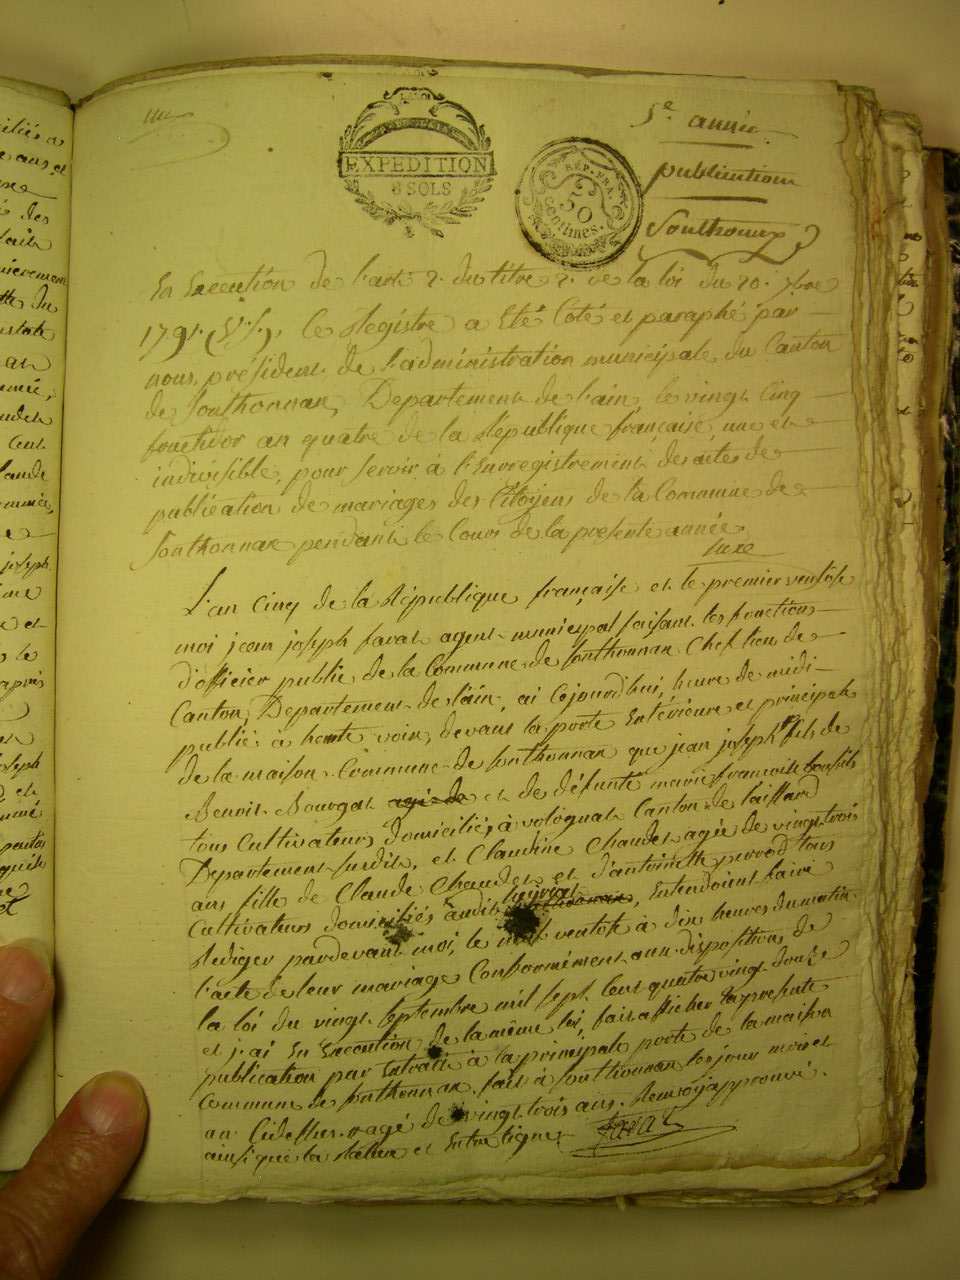 5e année
publication
Sonthonnax
LA LOI
EXPEDITION
8 SOLS
REP. FRA.
50
centimes.
En Execution de l'art. 2. du titre 2. de la loi du 20. 7bre
1791. (V.S.), Ce Registre a Eté Coté et paraphé par
nous, président de l'administration municipale du Canton
de Sonthonnax, Departement de l'ain, le vingt Cinq
fructidor an quatre de la République française, une et
indivisible, pour servir à l'Enregistrement des actes de
publication de mariages des Citoyens de la Commune de
Sonthonnax pendant le Cours de la presente année.
L'an Cinq de la République française et le premier ventose
moi jean joseph favat agent municipal faisant les fonctions
d'officier public de la Commune de Sonthonnax Chef lieu de
Canton, Departement de l'ain, ai Cejourd'hui, heure de midi
publié à haute voix, devant la porte Extérieure et principale
de la maison Commune de Sonthonnax que jean joseph fils de
Benoit Bourgat et de défunte marie françoise
tous Cultivateurs domiciliés à volognat Canton de
Departement susdit, et Claudine Chaudet agée de vingt trois
ans fille de Claude Chaudet et d'antoinette tous
Cultivateurs domiciliés audit heyriat, Entendoient faire
Rediger pardevant moi, le ventose à dix heures du matin
l'acte de leur mariage Conformément aux dispositions de
la loi du vingt Septembre mil sept Cent quatre vingt douze
et j'ai En Execution de la même loi, fait afficher la presente
publication par Extrait à la principale porte de la maison
Commune de Sonthonnax. fait à Sonthonnax les jour mois et
an Cidessus. agé de vingt trois ans. Renvoy approuvé.
ainsi que la Rature et Entre ligne
favat